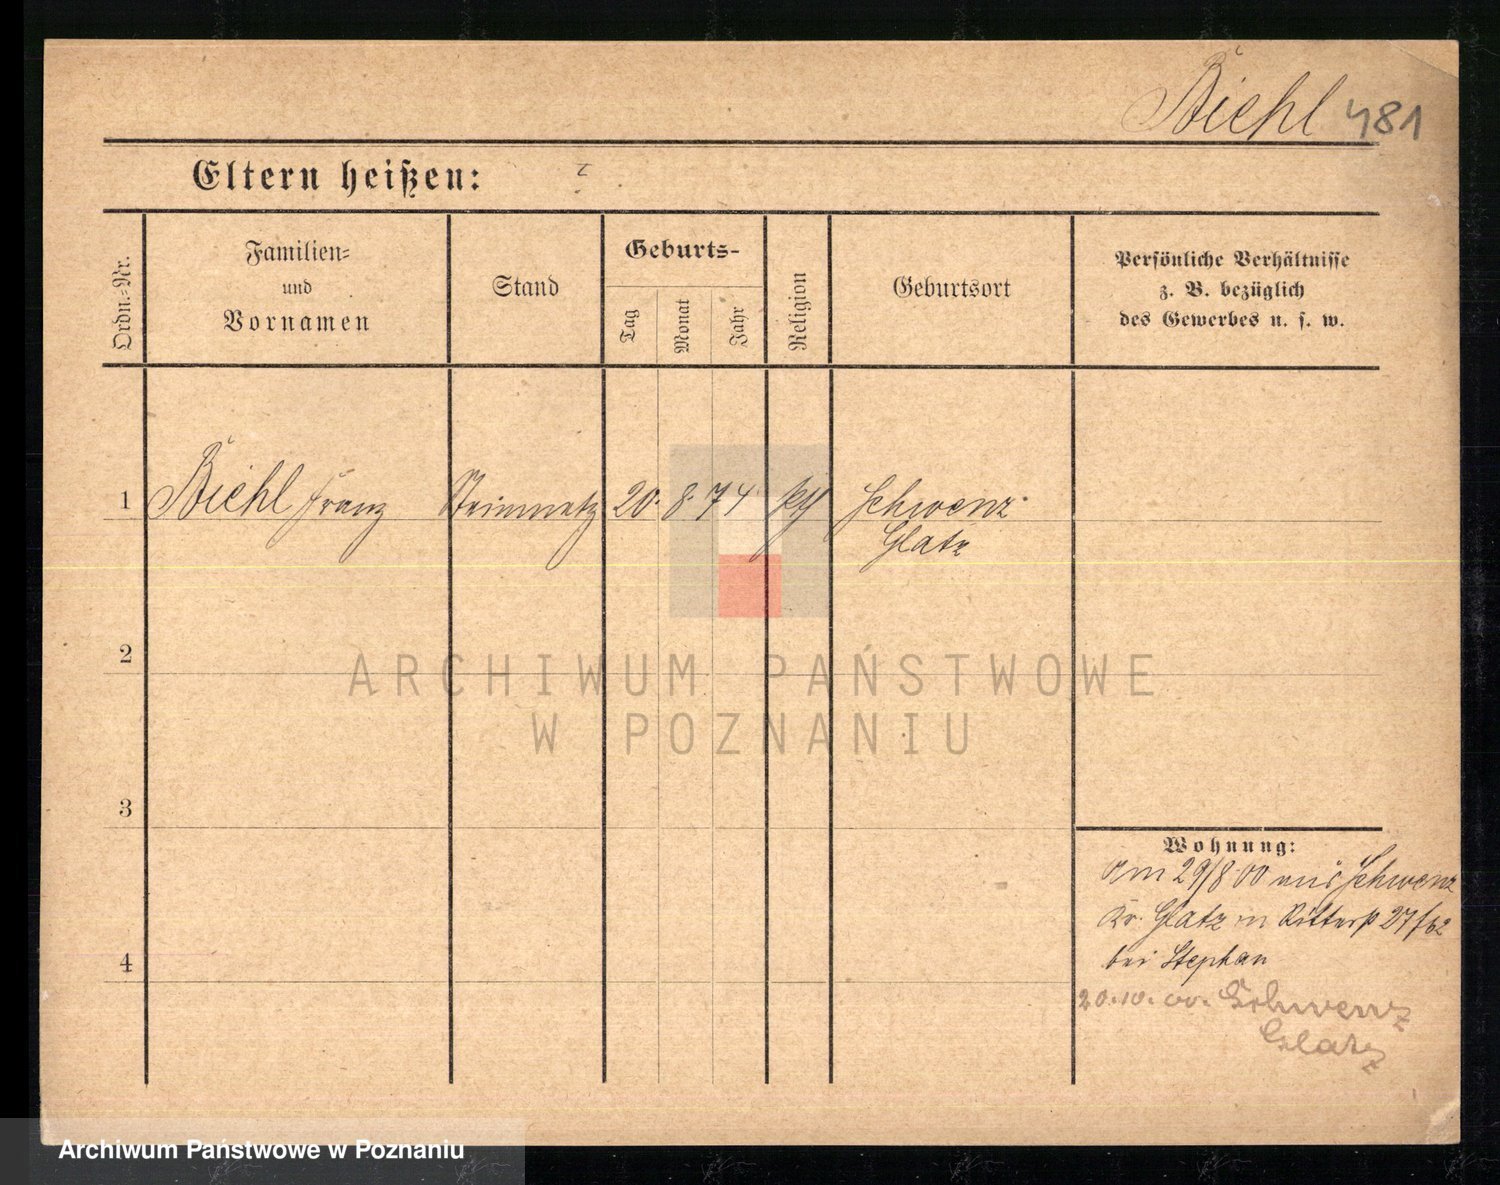 Biehl 481
Eltern heißen:
Ordn.-Nr.
Familien-
und
Vornamen
Stand
Geburts-
Tag
Monat
Jahr
Religion
Geburtsort
Persönliche Verhältnisse
z. B. bezüglich
des Gewerbes u. s. w.
1 Biehl Franz Steinmetz 20. 8. 74 Schwenz
Glatz
2
3
4
Wohnung:
Am 29/8 00 aus Schwenz
Kr. Glatz in
bei Stephan
20.10.00. Schwenz
Glatz
ARCHIWUM PAŃSTWOWE
W POZNANIU
Archiwum Państwowe w Poznaniu